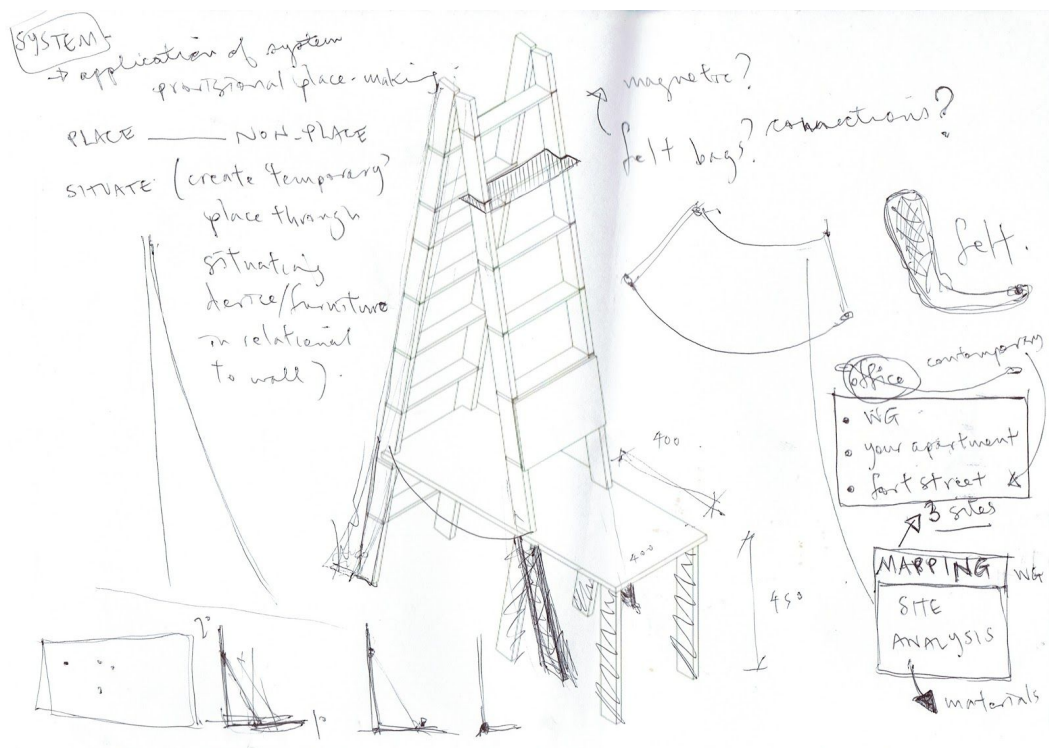 SYSTEM
→ application of system
provisional place-making.
PLACE —— NON-PLACE
SITUATE (create temporary
place through
situating
device/furniture
in relational
to wall).
magnetic?
felt bags? connections?
felt.
office contemporary
• WG
• your apartment
• fort street
3 sites
MAPPING WG
SITE
ANALYSIS
materials
400
400
450